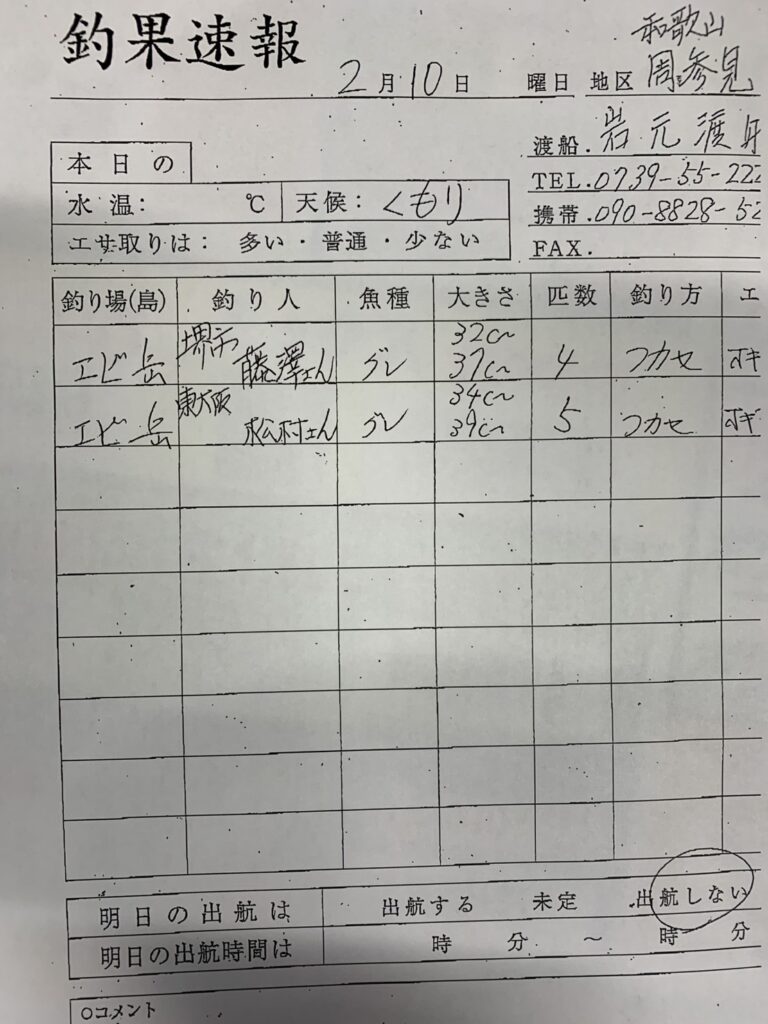 釣果速報
2月10日 曜日 地区 和歌山 周参見
渡船. 岩元渡
TEL. 0739-55-222
携帯. 090-8828-52
FAX.
本日の
水温: ℃ 天候: くもり
エサ取りは: 多い・普通・少ない
釣り場(島) 釣り人 魚種 大きさ 匹数 釣り方 エ
エビ岳 堺市 藤澤さん グレ 32㎝〜37㎝ 4 フカセ オキ
エビ岳 東大阪 松村さん グレ 34㎝〜39㎝ 5 フカセ オキ
明日の出航は 出航する 未定 出航しない
明日の出航時間は 時 分 〜 時 分
○コメント